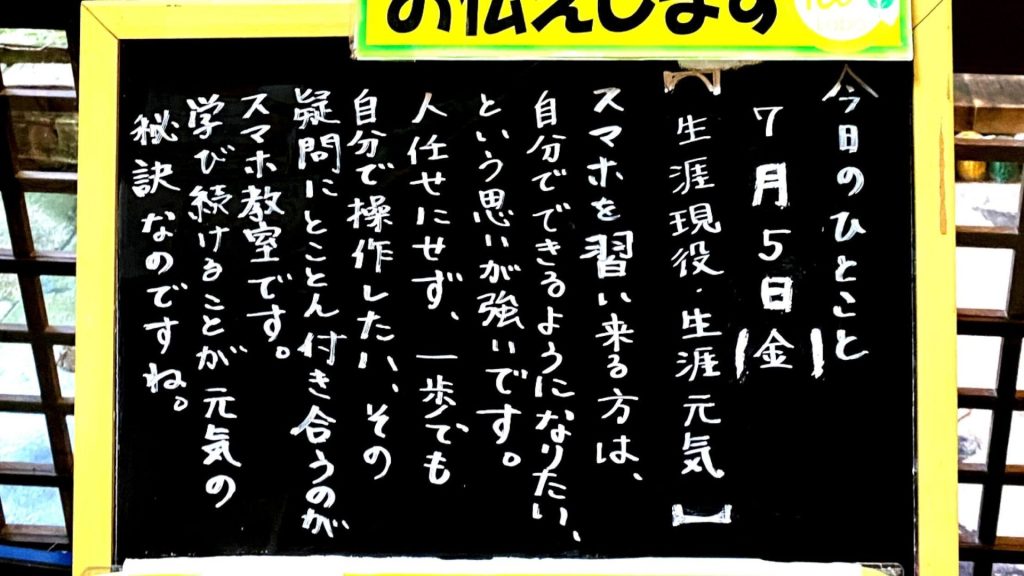 お伝えします
今日のひとこと
7月5日(金)
【生涯現役・生涯元気】
スマホを習い来る方は、
自分でできるようになりたい、
という思いが強いです。
人任せにせず、一歩でも
自分で操作したい、その
疑問にとことん付き合うのが
スマホ教室です。
学び続けることが元気の
秘訣なのですね。